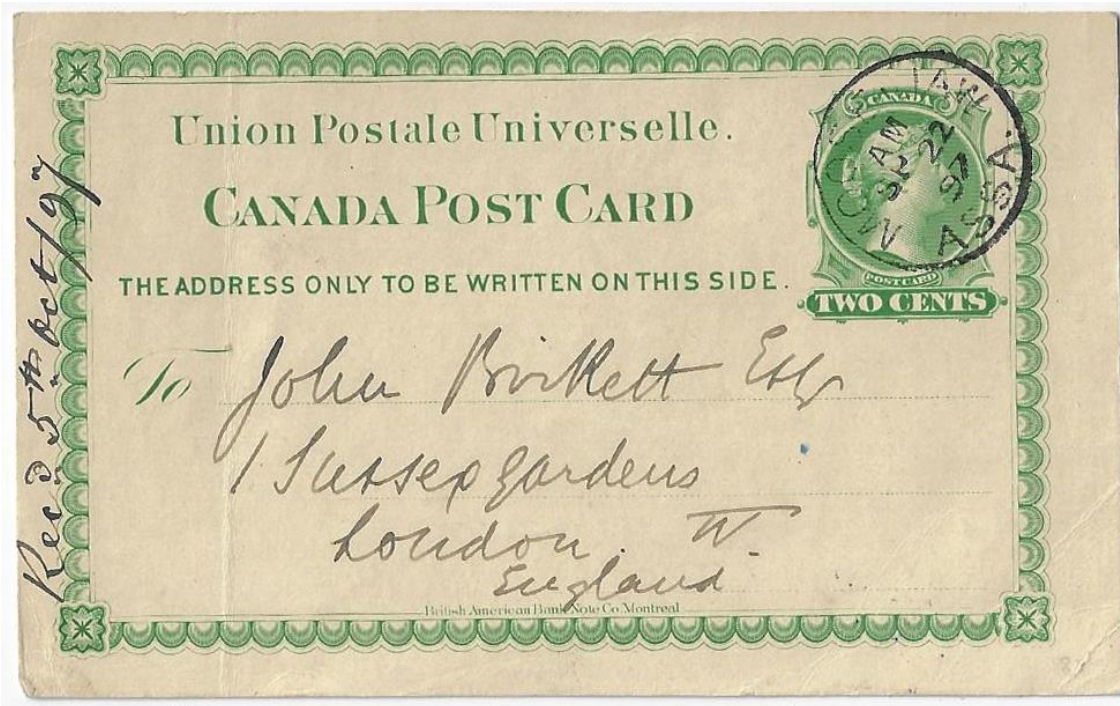 Union Postale Universelle.
CANADA POST CARD
THE ADDRESS ONLY TO BE WRITTEN ON THIS SIDE.
CANADA
POST CARD
TWO CENTS
MOOSE JAW
AM
SP 22
97
ASSA.
To John Birkett Esq
1 Sussex Gardens
London. W.
England
British American Bank Note Co. Montreal
Recd 5th Oct/97